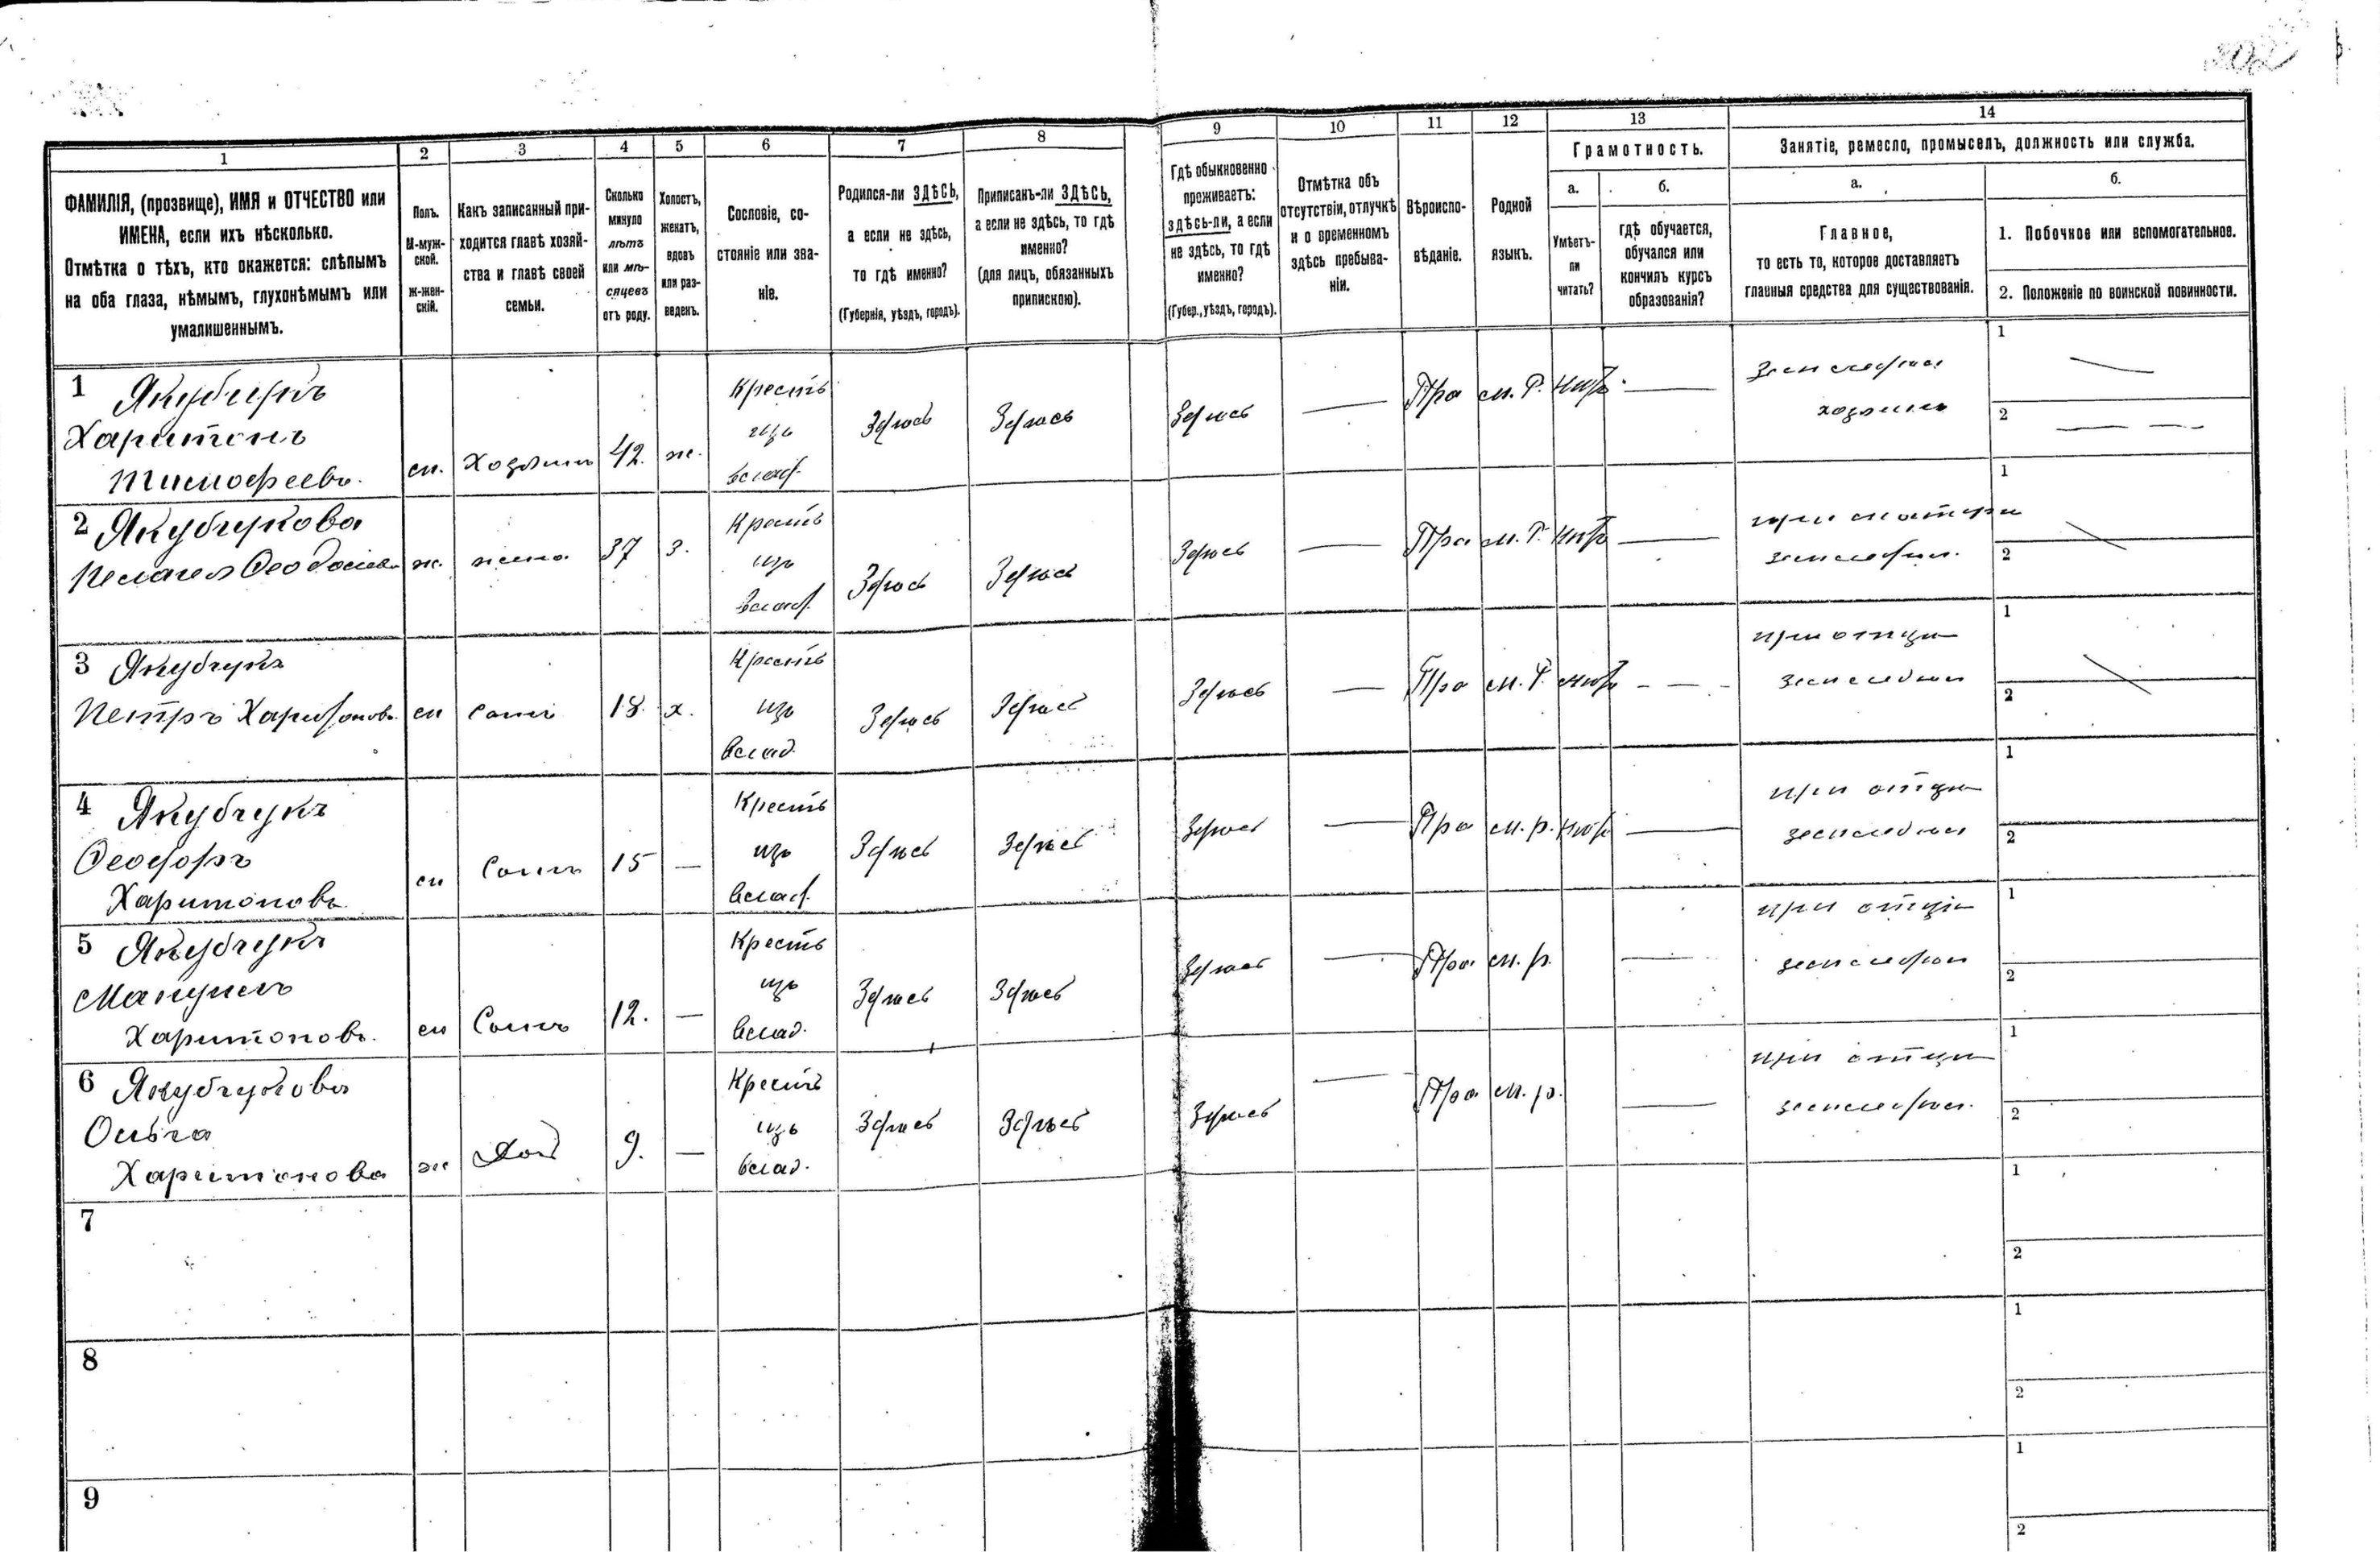 1
2
3
4
5
6
7
8
9
10
11
12
13
14
ФАМИЛІЯ, (прозвище), ИМЯ и ОТЧЕСТВО или
ИМЕНА, если ихъ нѣсколько.
Отмѣтка о тѣхъ, кто окажется: слѣпымъ
на оба глаза, нѣмымъ, глухонѣмымъ или
умалишеннымъ.
Полъ.
М-муж-
ской.
Ж-жен-
скій.
Какъ записанный при-
ходится главѣ хозяй-
ства и главѣ своей
семьи.
Сколько
минуло
лѣтъ
или мѣ-
сяцевъ
отъ роду.
Холостъ,
женатъ,
вдовъ
или раз-
веденъ.
Сословіе, со-
стояніе или зва-
ніе.
Родился-ли ЗДѢСЬ,
а если не здѣсь,
то гдѣ именно?
(Губернія, уѣздъ, городъ).
Приписанъ-ли ЗДѢСЬ,
а если не здѣсь, то гдѣ
именно?
(для лицъ, обязанныхъ
припискою).
Гдѣ обыкновенно
проживаетъ:
здѣсь-ли, а если
не здѣсь, то гдѣ
именно?
(Губер., уѣздъ, городъ).
Отмѣтка объ
отсутствіи, отлучкѣ
и о временномъ
здѣсь пребыва-
ніи.
Вѣроиспо-
вѣданіе.
Родной
языкъ.
Грамотность.
а.
Умѣетъ-
ли
читать?
б.
гдѣ обучается,
обучался или
кончилъ курсъ
образованія?
Занятіе, ремесло, промыселъ, должность или служба.
а.
Главное,
то есть то, которое доставляетъ
главныя средства для существованія.
б.
1. Побочное или вспомогательное.
2. Положеніе по воинской повинности.
1 Якубчукъ
Харитонъ
Тимофеевъ.
м. Хозяинъ 42. ж.
Крестъ
изъ
влад.
Здѣсь Здѣсь Здѣсь — Пра м. Р. нѣтъ —
земледѣл
хозяинъ
1 —
2 — —
2 Якубчукова
Пелагея Ѳеодосіева
ж. жена 37 з.
Крестъ
изъ
влад.
Здѣсь Здѣсь Здѣсь — Пра м. Р. нѣтъ —
при
земледѣл.
1
2
3 Якубчукъ
Петръ Харитоновъ
м сынъ 18 х.
Крестъ
изъ
влад.
Здѣсь Здѣсь Здѣсь — Пра м. Р. нѣтъ — —
при отцѣ
земледѣл
1
2
4 Якубчукъ
Ѳеодоръ
Харитоновъ
м Сынъ 15 —
Крестъ
изъ
влад.
Здѣсь Здѣсь Здѣсь — Пра м. р. нѣтъ —
при отцѣ
земледѣл
1
2
5 Якубчукъ
Мануилъ
Харитоновъ.
м Сынъ 12. —
Крестъ
изъ
влад.
Здѣсь Здѣсь Здѣсь — Пра. м. р. —
при отцѣ
земледѣл
1
2
6 Якубчукова
Ольга
Харитонова
ж Доч 9. —
Крестъ
изъ
влад.
Здѣсь Здѣсь Здѣсь — Пра м. р. —
при отцѣ
земледѣл.
1
2
7
1
2
8
1
2
9
1
2